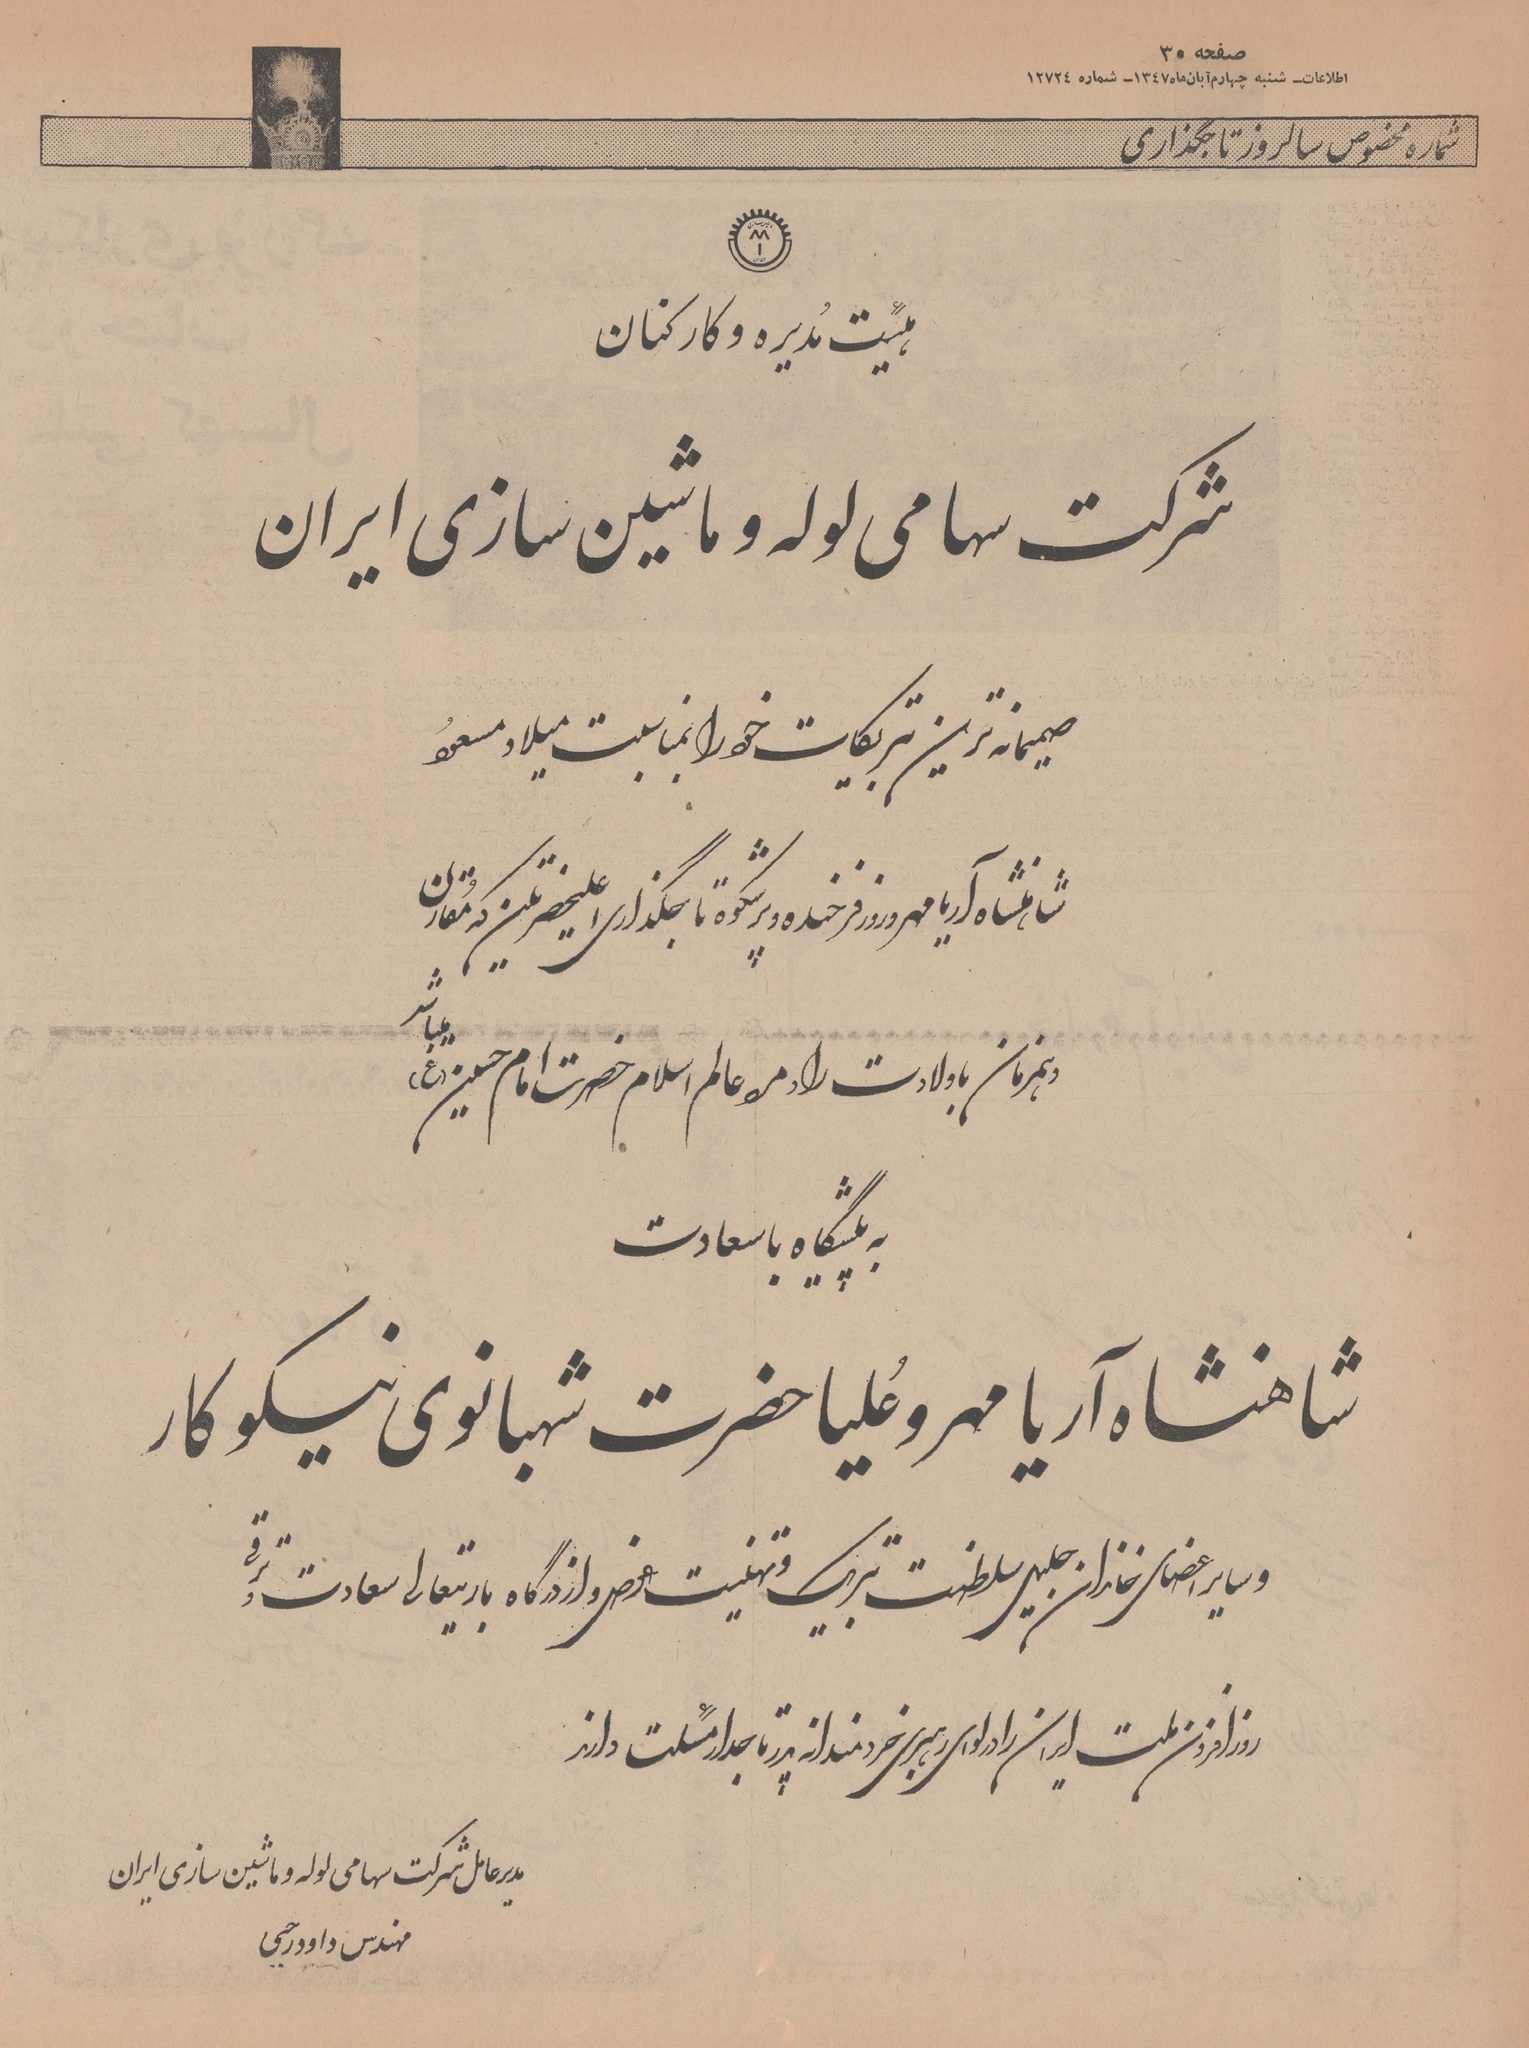 صفحه ۳۰
اطلاعات ـ شنبه چهارم آبان ماه ۱۳۴۷ ـ شماره ۱۲۷۲۴
شماره مخصوص سالروز تاجگذاری
هیئت مُدیره و کارکنان
شرکت سهامی لوله و ماشین سازی ایران
صمیمانه ترین تبریکات خود را بمناسبت میلاد مسعود
شاهنشاه آریامهر و روز فرخنده و پرشکوه تاجگذاری اعلیحضرتین که مُقارن
و همزمان با ولادت رادمرد عالم اسلام حضرت امام حسین (ع) میباشد
به پیشگاه با سعادت
شاهنشاه آریامهر و عُلیاحضرت شهبانوی نیکوکار
و سایر اعضای خاندان جلیل سلطنت تبریک و تهنیت عرض و از درگاه باریتعالی سعادت و ترقی
روزافزون ملت ایران را در لوای رهبری خردمندانه پدر تاجدار مسئلت دارند
مدیر عامل شرکت سهامی لوله و ماشین سازی ایران
مهندس داود رجبی